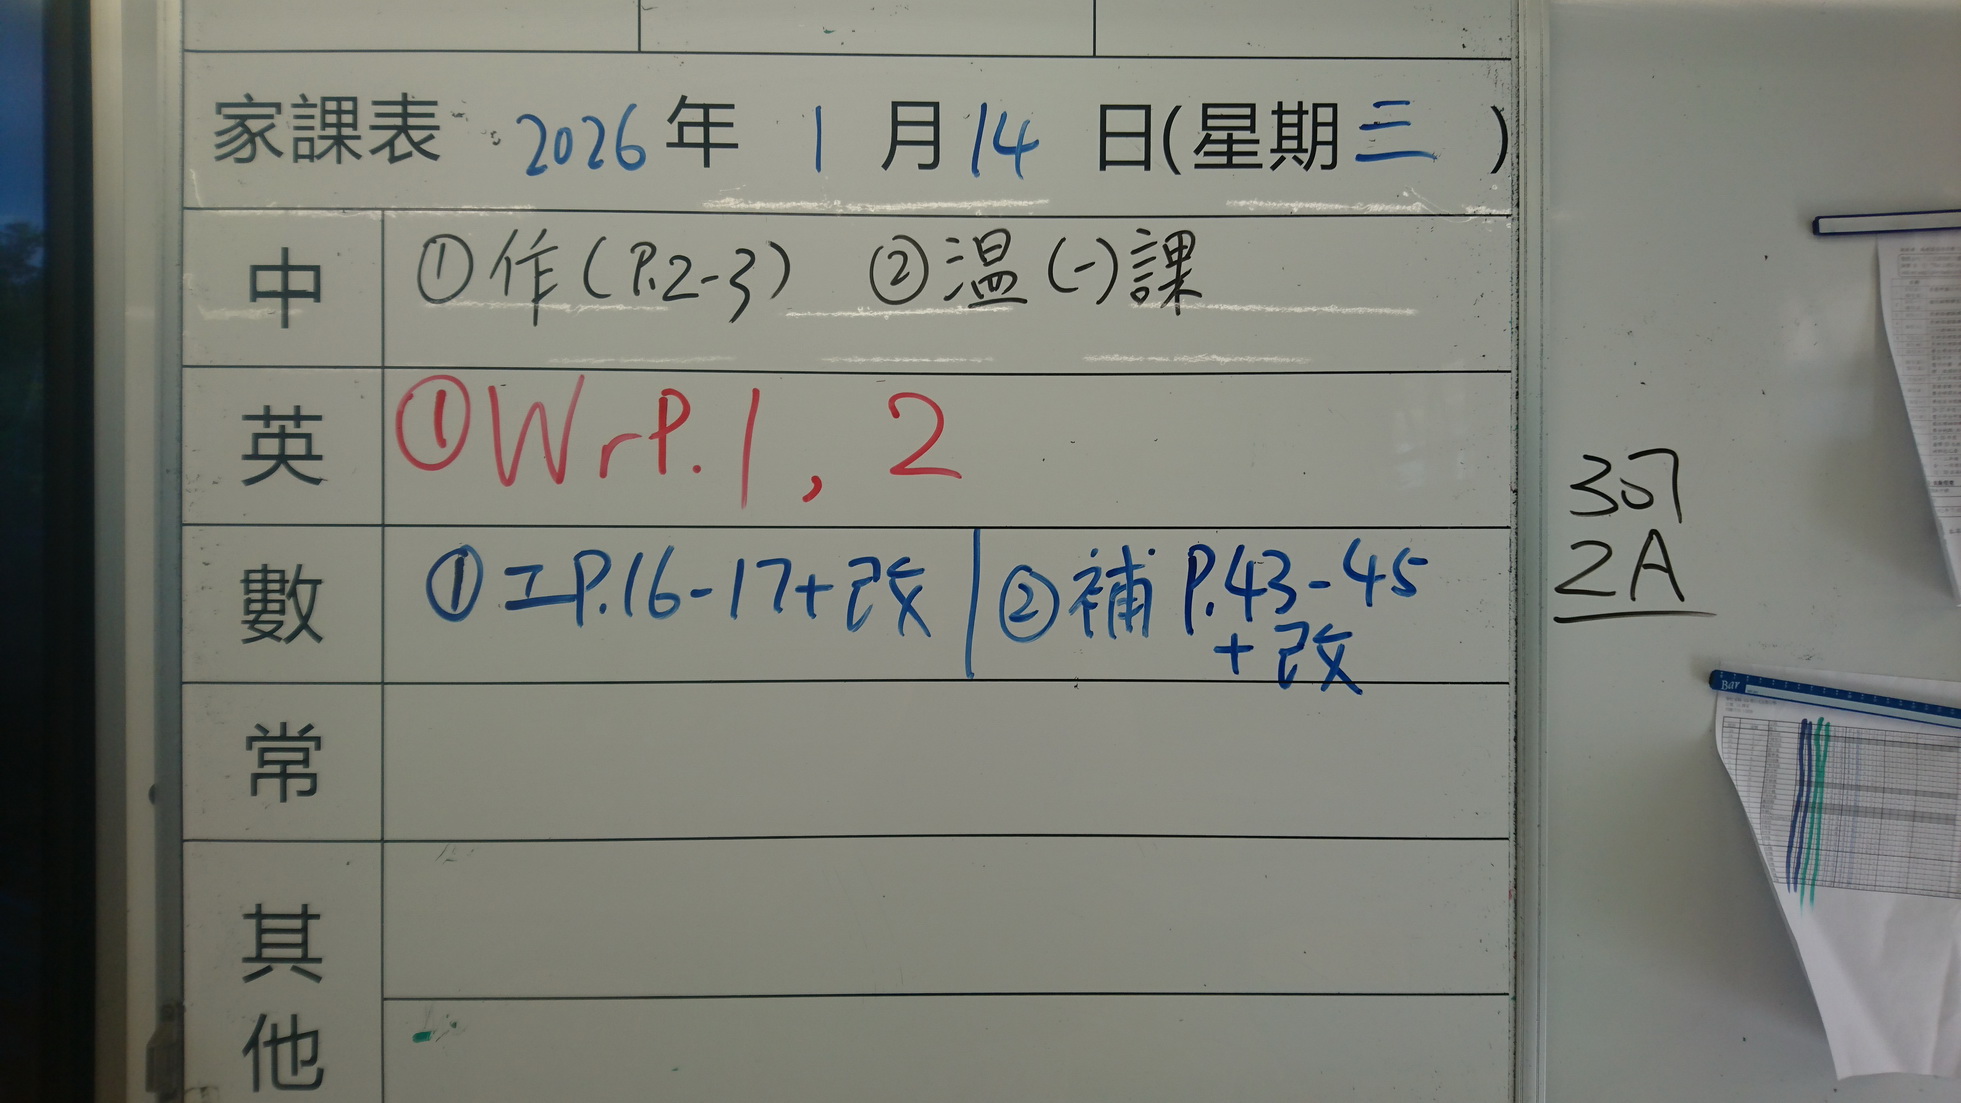 家課表 2026年 1月14日(星期三)
中 ①作(P.2-3) ②溫(一)課
英 ①Wr P.1, 2
數 ①工P.16-17+改 | ②補 P.43-45
+改
常
其他
307
2A
Bar